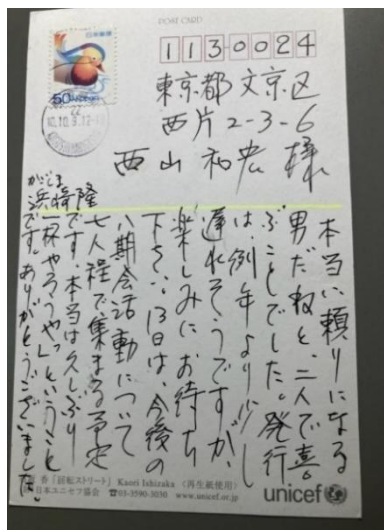 POST CARD
日本郵便
50 NIPPON
1130024
東京都文京区
西片2-3-6
西山和宏様
本当に頼りになる
男だねと、二人で喜
ぶことしでした。発行
は、例年より少し
遅れそうですが、
楽しみにお待ち
下さい。13日は、今後の
八期会活動について
七人程で集まる予定
です。本当は久しぶり
「一杯やろうやっ」ということ
です。ありがとうございました。
浜崎隆
香「回転ストリート」 Kaori Ishizaka 〈再生紙使用〉
日本ユニセフ協会 ☎03-3590-3030 www.unicef.or.jp
unicef